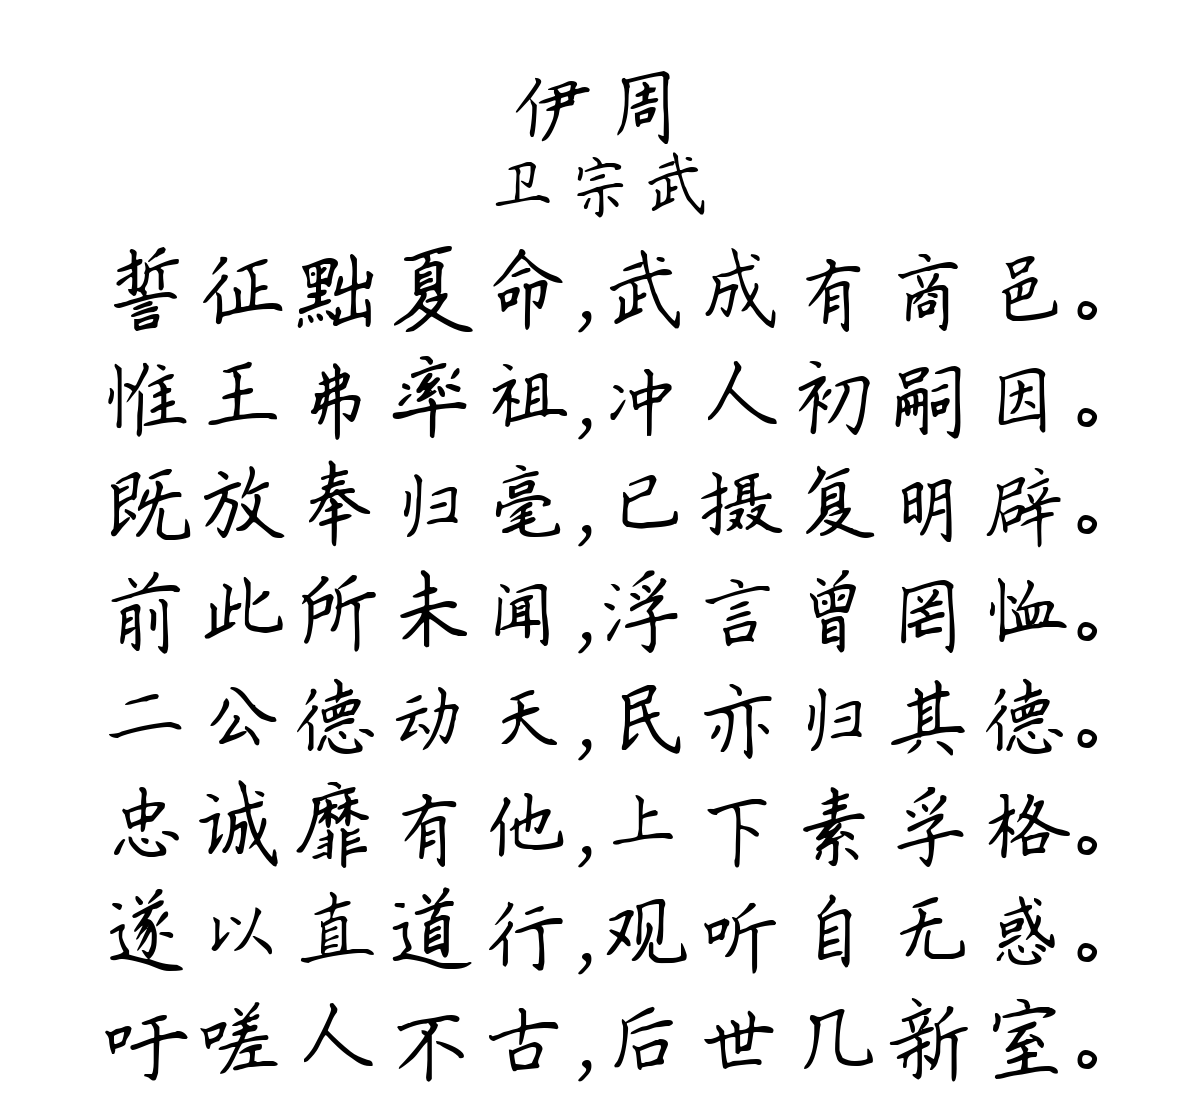 伊周
卫宗武
誓征黜夏命,武成有商邑。
惟王弗率祖,冲人初嗣因。
既放奉归亳,已摄复明辟。
前此所未闻,浮言曾罔恤。
二公德动天,民亦归其德。
忠诚靡有他,上下素孚格。
遂以直道行,观听自无惑。
吁嗟人不古,后世几新室。